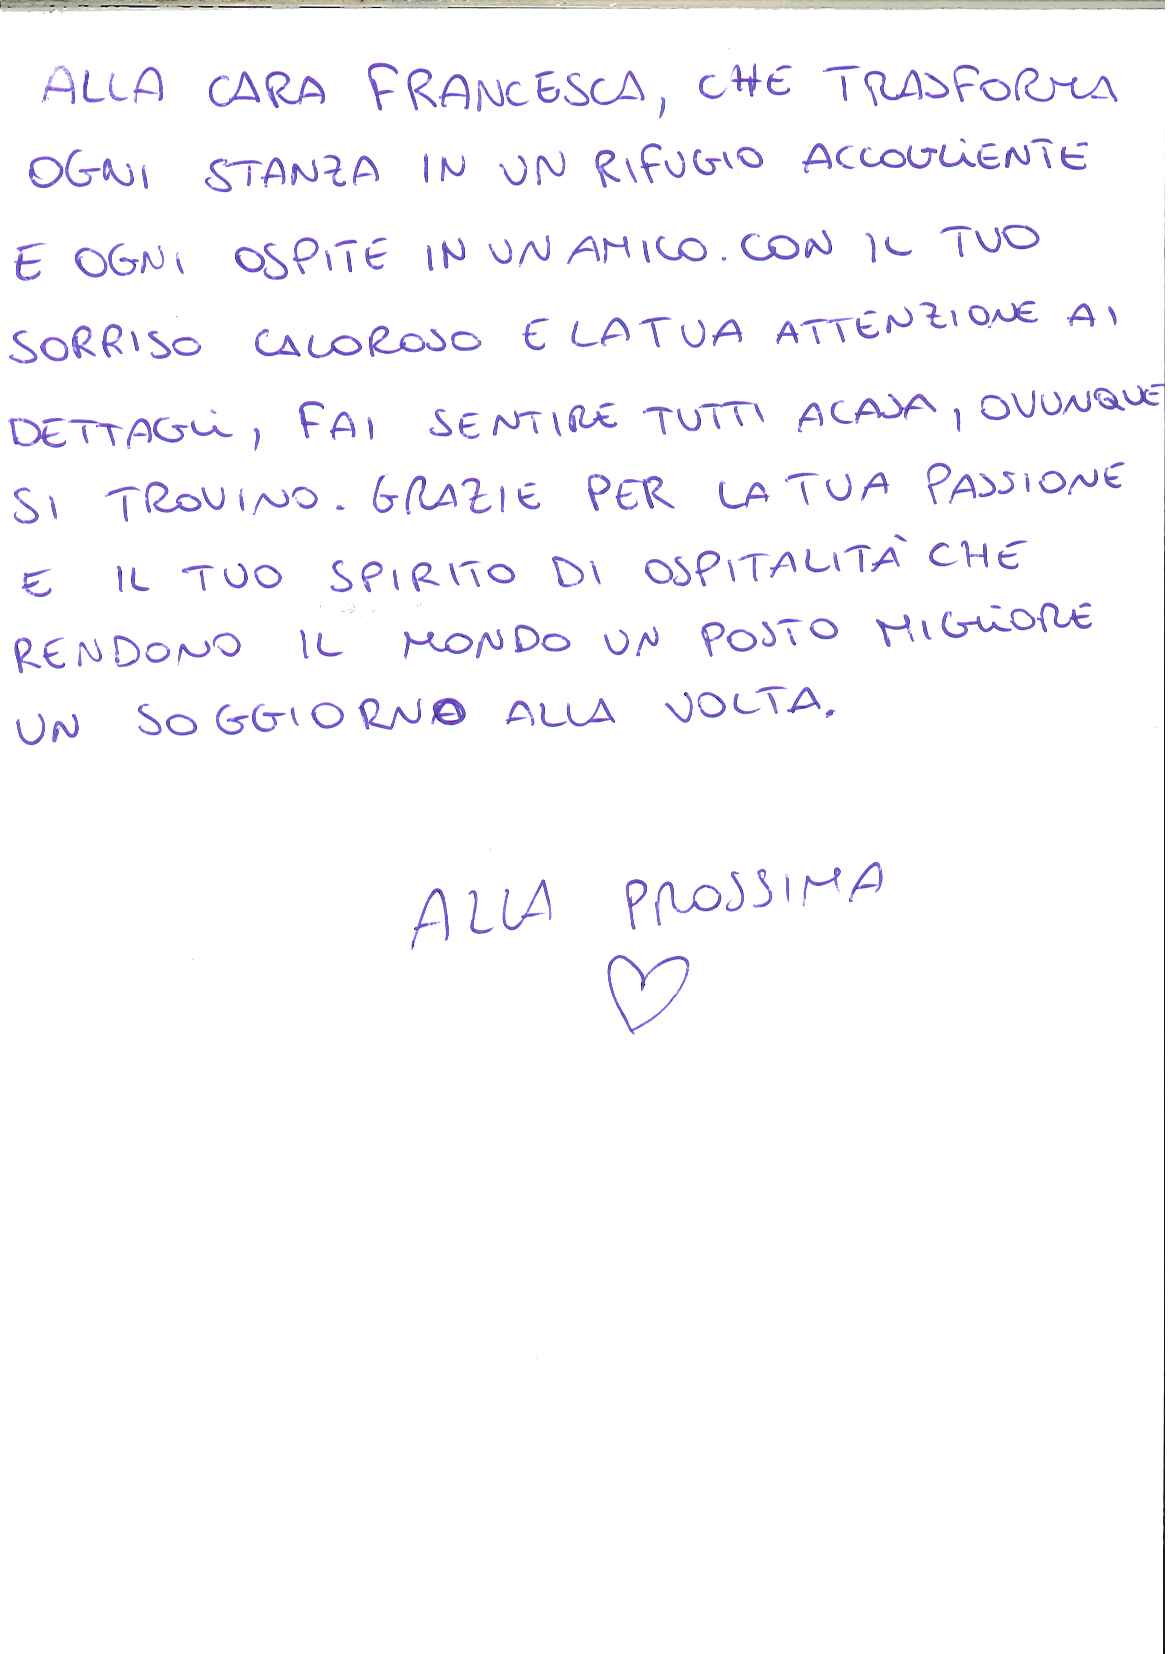 ALLA CARA FRANCESCA, CHE TRASFORMA
OGNI STANZA IN UN RIFUGIO ACCOGLIENTE
E OGNI OSPITE IN UN AMICO. CON IL TUO
SORRISO CALOROSO E LA TUA ATTENZIONE AI
DETTAGLI, FAI SENTIRE TUTTI A CASA, OVUNQUE
SI TROVINO. GRAZIE PER LA TUA PASSIONE
E IL TUO SPIRITO DI OSPITALITÀ CHE
RENDONO IL MONDO UN POSTO MIGLIORE
UN SOGGIORNO ALLA VOLTA.
ALLA PROSSIMA